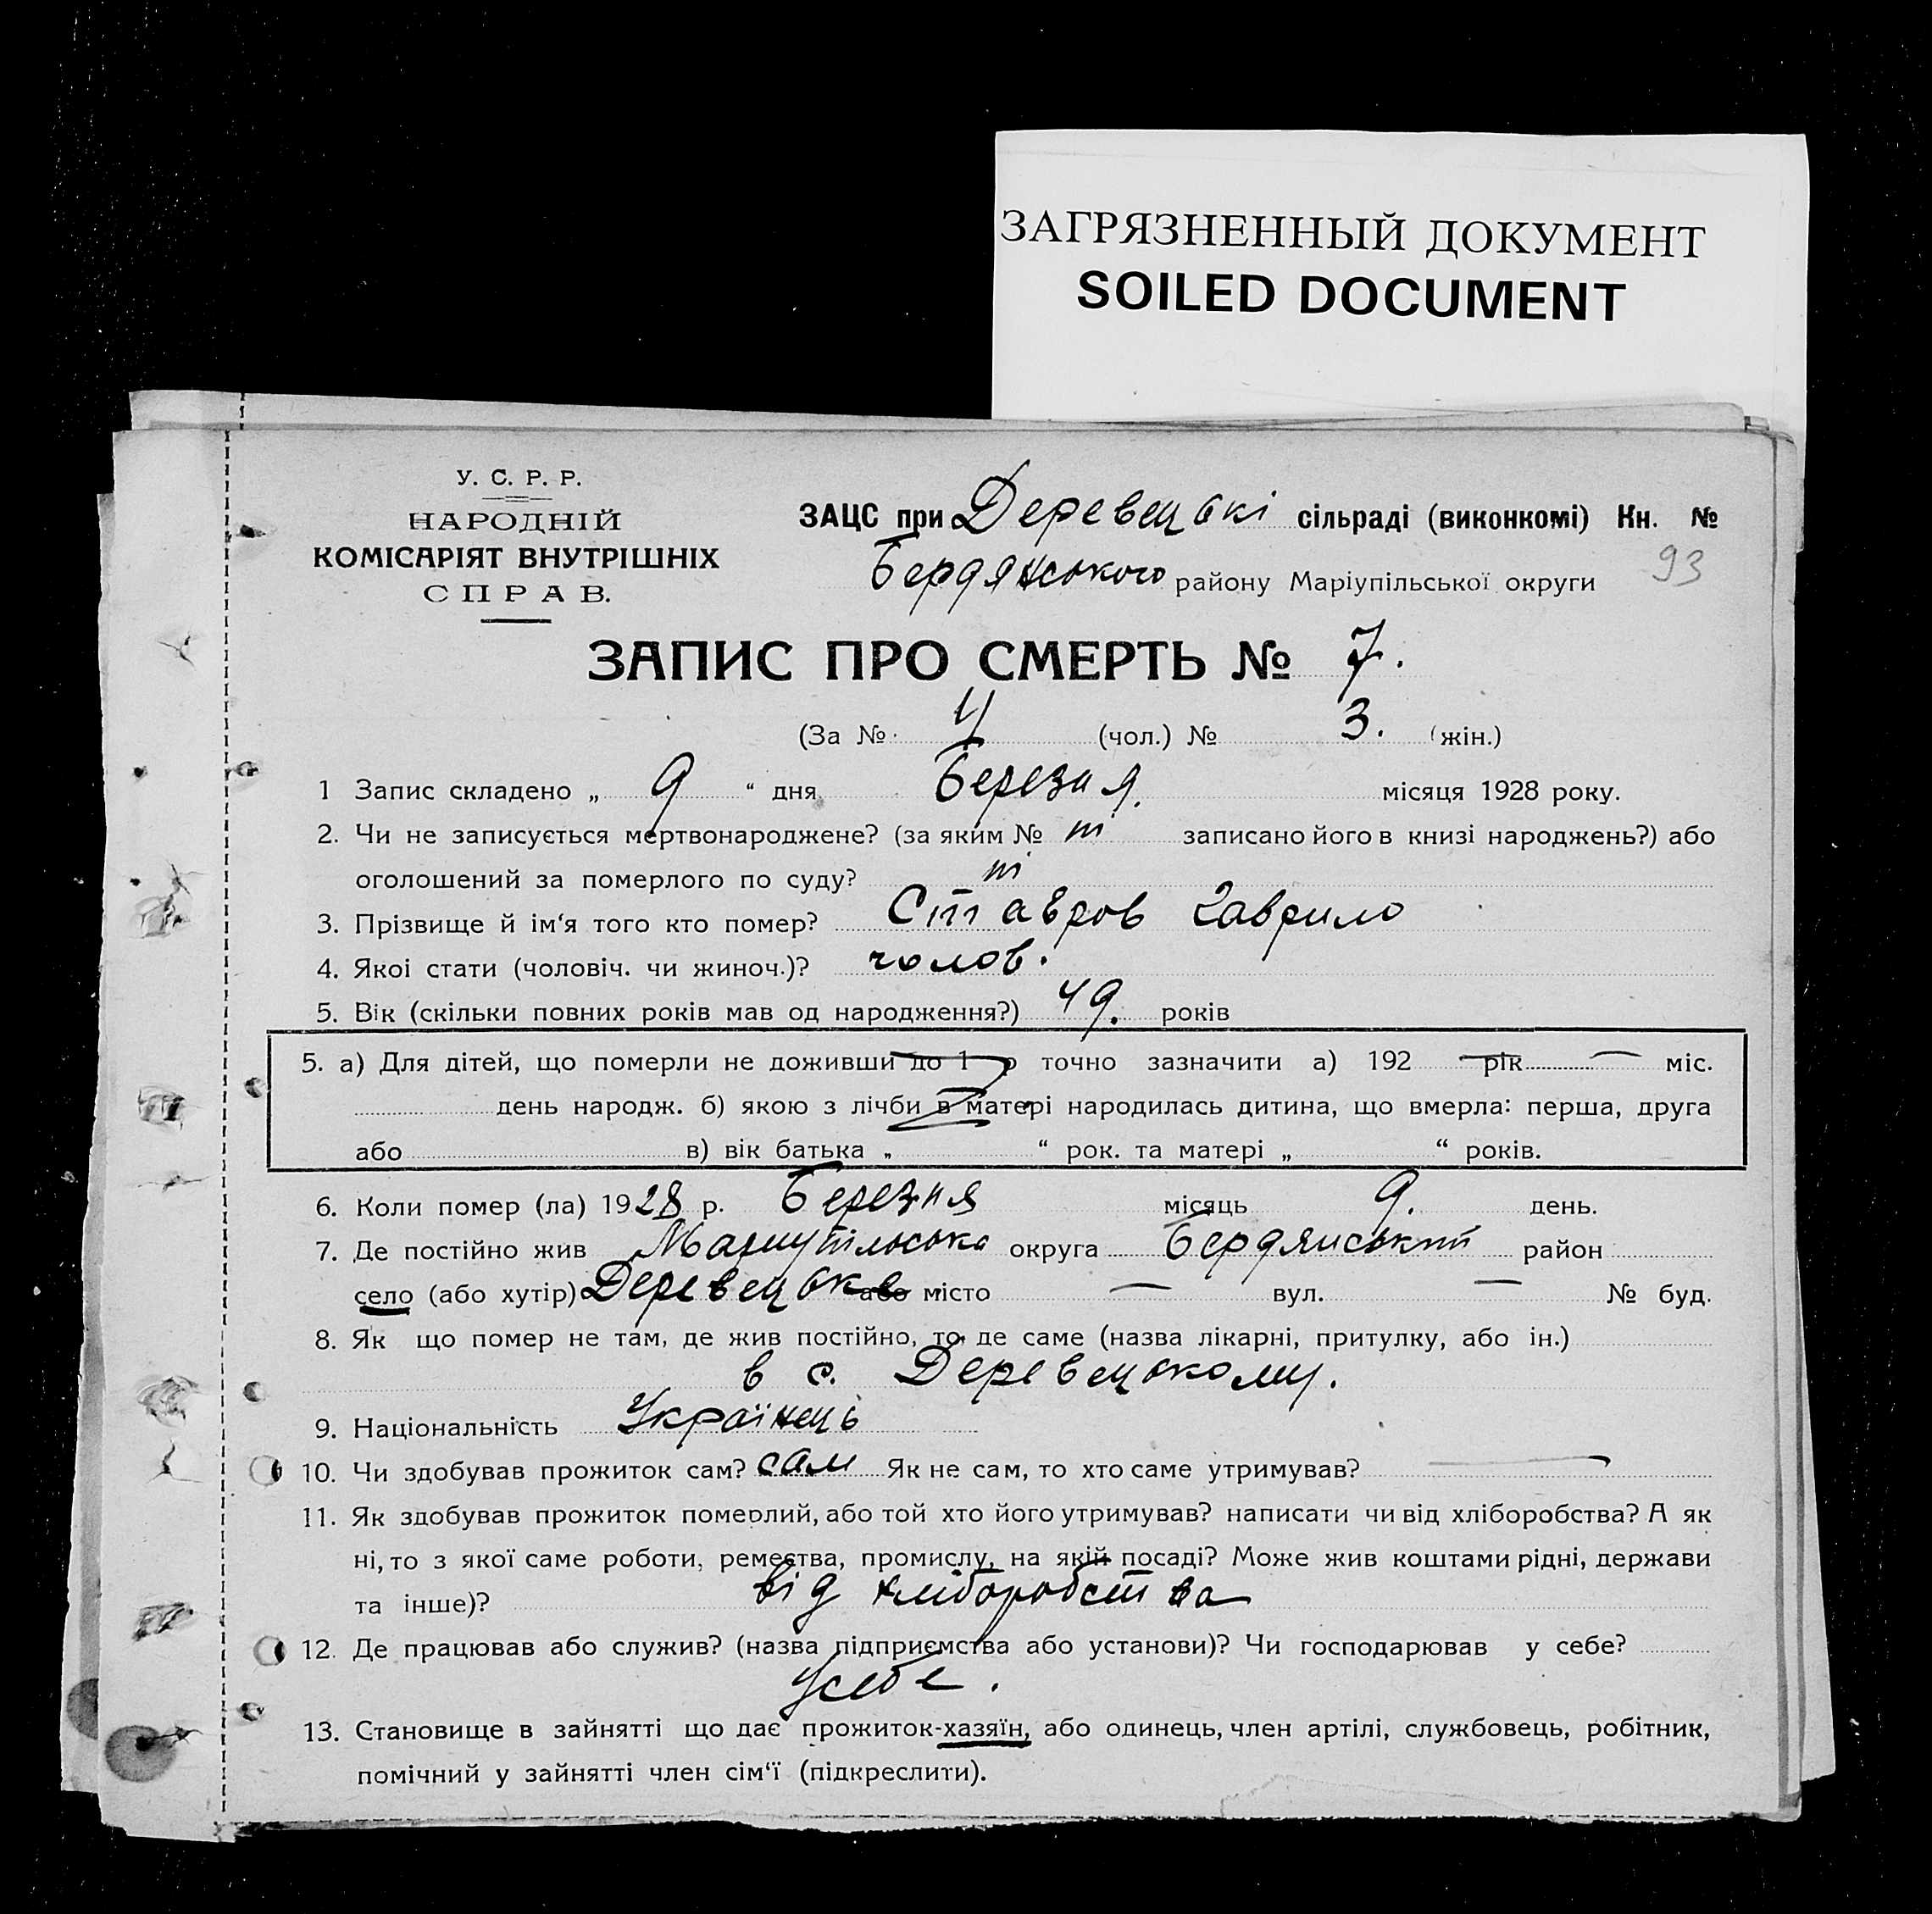 ЗАГРЯЗНЕННЫЙ ДОКУМЕНТ
SOILED DOCUMENT
У. С. Р. Р.
НАРОДНІЙ
КОМІСАРІЯТ ВНУТРІШНІХ
СПРАВ.
ЗАЦС при Деревецькі сільраді (виконкомі) Кн. №
Бердянського району Маріупільської округи 93
ЗАПИС ПРО СМЕРТЬ № 7.
(За № 4 (чол.) № 3. (жін.)
1 Запис складено „ 9 “ дня Березня місяця 1928 року.
2. Чи не записується мертвонароджене? (за яким № ні записано його в книзі народжень?) або
оголошений за померлого по суду? ні
3. Прізвище й ім‘я того кто помер? Ставров Гаврило
4. Якоі стати (чоловіч. чи жиноч.)? чолов.
5. Вік (скільки повних років мав од народження?) 49. років
5. а) Для дітей, що померли не доживши до 1 р точно зазначити а) 192 — рік — міс.
день народж. б) якою з лічби в матері народилась дитина, що вмерла: перша, друга
або в) вік батька „ “ рок. та матері „ “ років.
6. Коли помер (ла) 1928 р. Березня місяць 9. день.
7. Де постійно жив Маріупільська округа Бердянський район
село (або хутір) Деревецьке або місто — вул. — № буд.
8. Як що помер не там, де жив постійно, то де саме (назва лікарні, притулку, або ін.)
в с. Деревецькому.
9. Національність Українець
10. Чи здобував прожиток сам? сам Як не сам, то хто саме утримував? —
11. Як здобував прожиток померлий, або той хто його утримував? написати чи від хліборобства? А як
ні, то з якої саме роботи, ремества, промислу, на якій посаді? Може жив коштами рідні, держави
та інше)? від хліборобства
12. Де працював або служив? (назва підприємства або установи)? Чи господарював у себе?
Усебе.
13. Становище в зайнятті що дає прожиток-хазяїн, або одинець, член артілі, службовець, робітник,
помічний у зайнятті член сім‘ї (підкреслити).